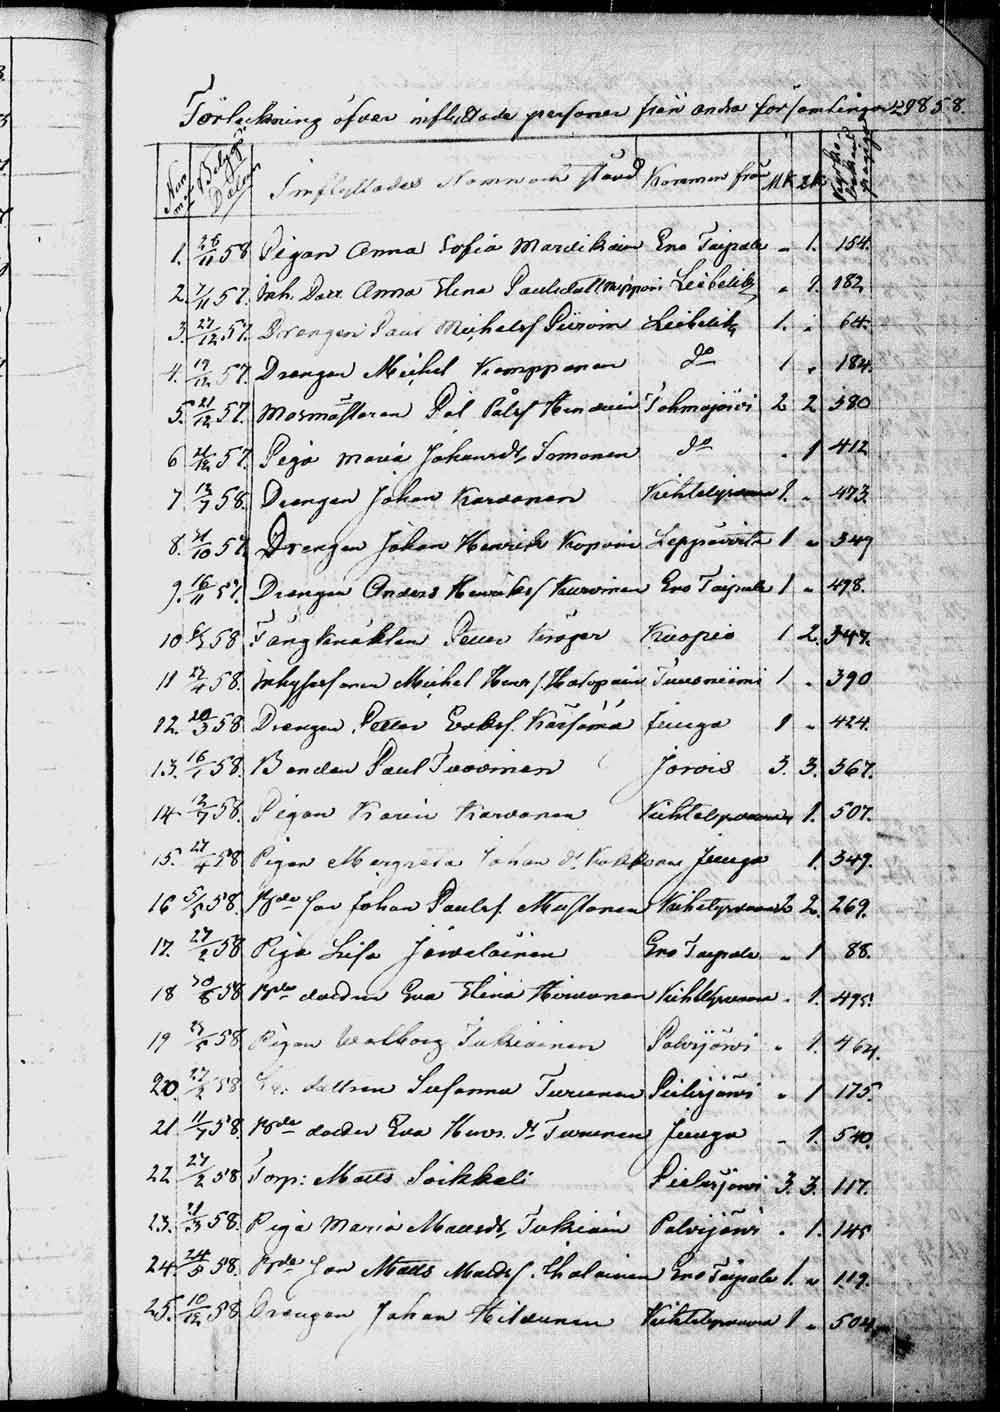 Förteckning öfver inflyttade personer från andra församlingar 1858.
Nummer Betygets Datum Inflyttades Namn och stånd Kommen från M.K. Q.K. Kyrko bokens pagina
1. 26/11 58 Pigan Anna Sofia Mardikain Eno Taipale " 1. 154.
2. 7/11 57. Inh. Dott. Anna Elena Paulsdott Leibelitz " 1. 182
3. 27/12 57. Drengen Paul Michelsf Piiroin Leibelitz 1. " 64.
4. 19/12 57. Drengen Michel Kamppanen do 1 " 184.
5. 21/12 57. Masmästaren Pål Pålsf Tohmajärvi 2 2 380
6 21/12 57. Piga Maria Johansdr, Somonen do " 1 412
7 13/7 58. Drengen Johan Karvonen Kiihtelysvaara 1. " 473.
8. 21/10 57. Drengen Johan Henrik Kopoin Leppävirta 1 " 349
9. 16/11 57. Drengen Anders Henriksf Kurvinen Eno Taipale 1 " 498.
10 58 Fångknäkten Petter Kröger Kuopio 1 2. 347.
11 27/4 58. Michel Henrsf Halopain Tuusniemi 1 " 390
12. 20/3 58 Drengen Petter Eriksf. Kärsämä Juuga 1 " 424.
13. 16/1 58. Bonden Paul Tuovinen Jorois 3. 3. 367.
14 13/7 58. Pigan Karin Karvonen Kiihtelysvaara " 1. 507.
15. 27/4 58 Pigan Margreta Johan dr Juuga 1. 349.
16 5/5 58. Bde son Johan Paulsf. Mustonen Kiihtelysvaara 2 2. 269.
17. 27/2 58 Piga Lisa Jäväläinen Eno Taipale " 1 88.
18 30/8 58 Bde dottren Eva Elena Hirvonen Kiihtelysvaara " 1. 495.
19 23/5 58 Pigan Walborg Tukiainen Polvijärvi " 1. 464.
20. 27/2 58 dottren Susanna Turunen Pielisjärvi " 1 175.
21 11/7 58. Bde dotter Eva Henr. dr Turunen Juuga " 1. 540.
22 27/2 58 Torp: Matts Soikkeli Pielisjärvi 3. 3. 117.
23. 21/3 58. Piga Maria Mattsdr, Tukiain Polvijärvi " 1. 145
24. 24/5 58. Bde son Matts Mattsf. Ihalainen Eno Taipale 1. " 119.
25. 10/12 58 Drengen Johan Hiltunen Kiihtelysvaara 1 " 504